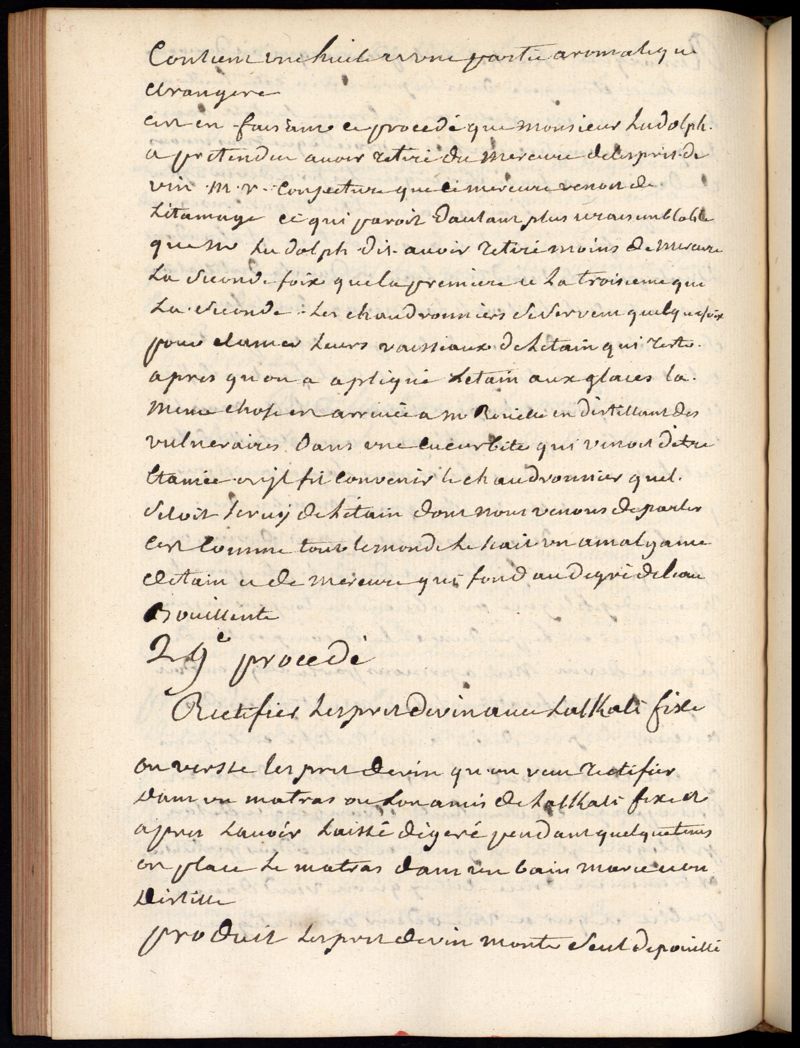 Contient une huile et une partie aromatique
etrangere
cest en faisant ce procedé que monsieur Ludolph.
a pretendu avoir retiré du mercure delesprit de
vin. m. r. conjecture que ce mercure venoit de
Letamage ce qui paroit dautant plus vraisemblable
que mr Ludolph dit avoir retiré moins de mercure
La seconde foix que la premiere et La troisieme que
La seconde. Les chaudronniers se servent quelquefoix
pour etamer Leurs vaisseaux de Letain qui reste.
apres qu'on a apliqué Letain aux glaces la.
meme chose est arrivée a mr Rouelle en distillant des
vulneraires. Dans une cucurbite qui venoit detre
Etamée. et jl fit convenir le chaudronnier quel.
Setoit servi de Letain dont nous venons de parler
cest comme tout le monde Le sait un amalgame
detain et de mercure qui fond au degré de leau
Bouillente
29e procedé
Rectifier Lesprit de vin avec Lalkali fixe
on versse lesprit de vin qu'on veut rectifier
dans un matras ou Lon a mis de Lalkali fixe et
apres Lavoir Laissé digeré pendant quelque tems
on place Le matras dans un bain marie et on
Distille
produit Lesprit de vin monte seul depouillé